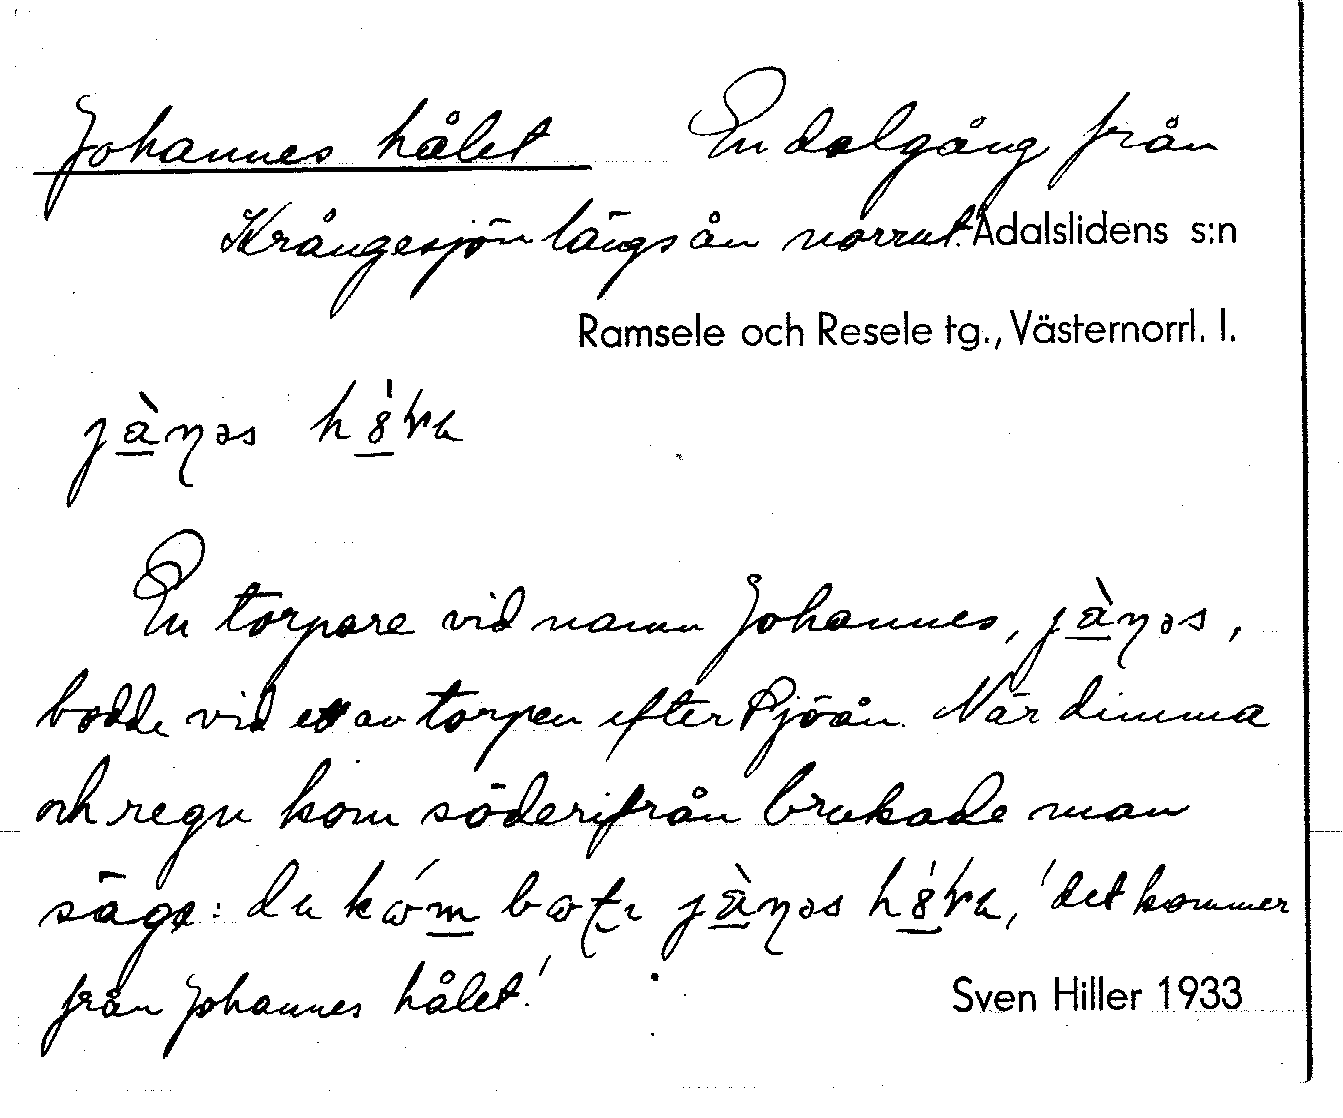 Johannes hålet En dalgång från
Krångesjön längs ån norrut. Ådalslidens s:n
Ramsele och Resele tg., Västernorrl. l.
En torpare vid namn Johannes,
bodde vid ett av torpen efter Pjöån. När dimma
och regn kom söderifrån brukade man
säga: 'det kommer
från Johannes hålet.'
Sven Hiller 1933